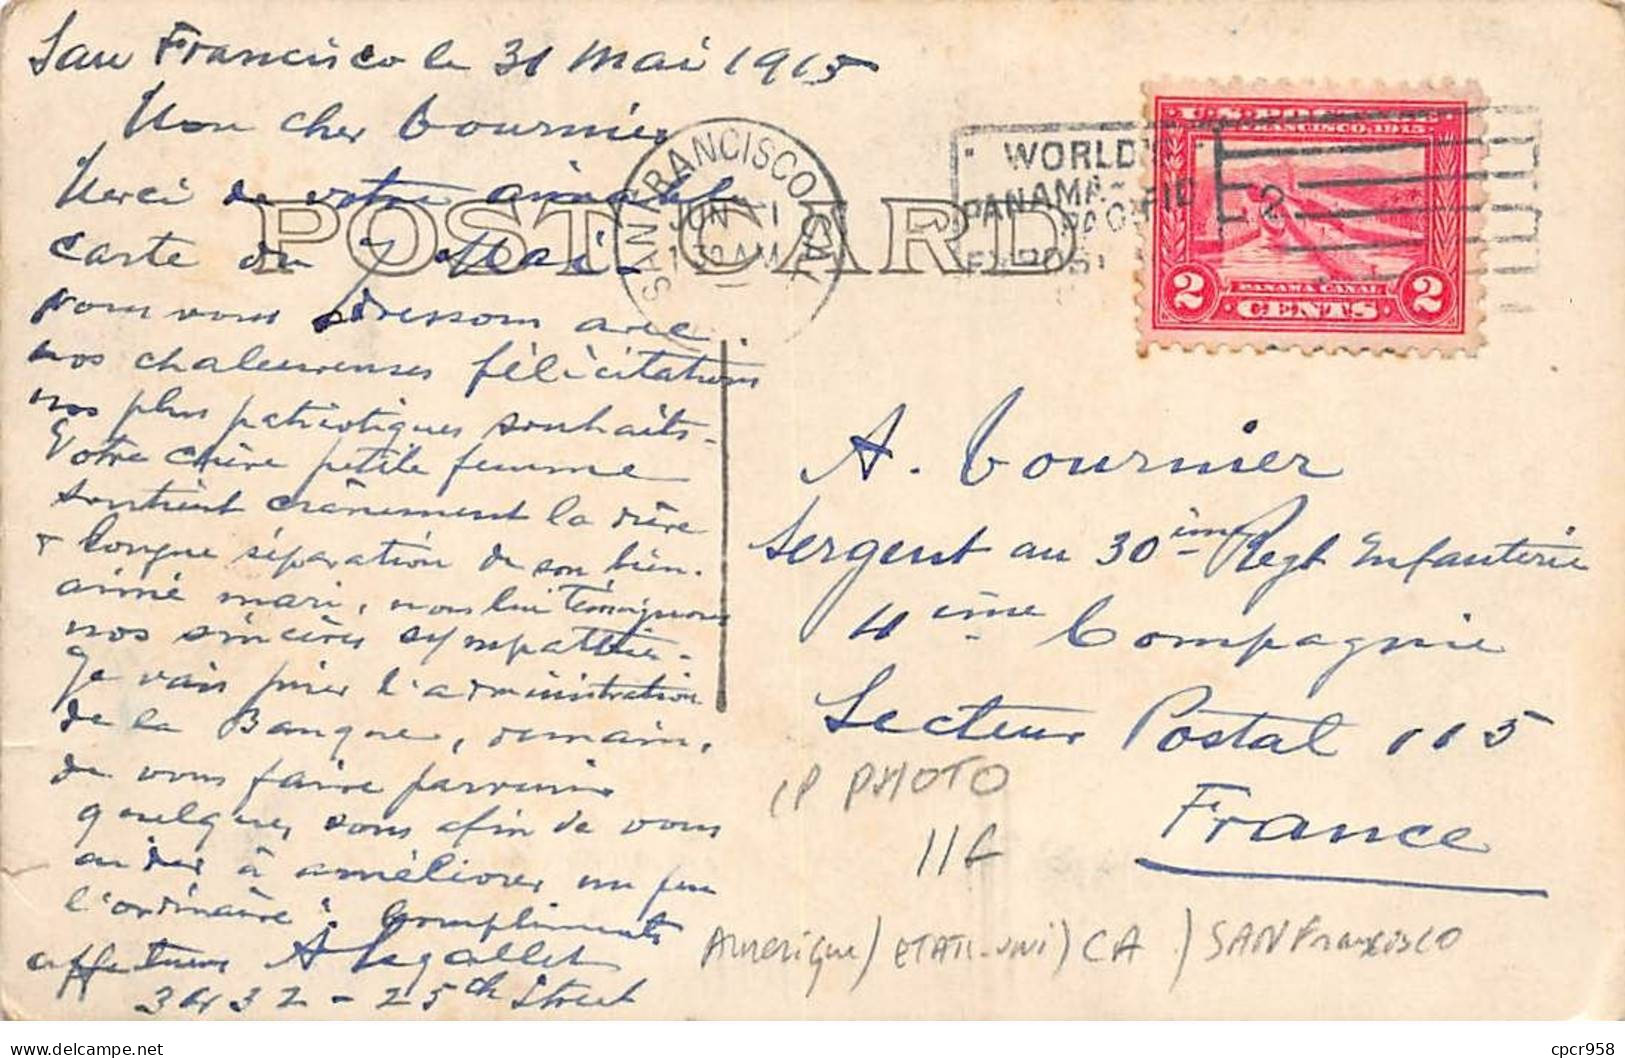 San Francisco le 31 Mai 1915
Mon cher Tournier
Merci de votre aimable
carte du 7 Mai -
nous vous adressons avec
nos chaleureuses félicitations
nos plus patriotiques souhaits -
Votre chère petite femme
soutient crânement la dure
& longue séparation de son bien-
aimé mari, nous lui témoignons
nos sincères sympathies -
Je vais prier l'administration
de la Banque, demain,
de vous faire parvenir
quelques sous afin de vous
aider à améliorer un peu
"l'ordinaire". Compliments
affectueux A Legallet
3432 - 25th Street
POST CARD
SAN FRANCISCO CAL.
JUN 1
1 30 AM
WORLD'S
PANAMA-
PACIFIC
EXPOSI
2
SAN FRANCISCO, 1915.
PANAMA CANAL
2 CENTS 2
A. Tournier
Sergent au 30ème Regt Infanterie
11ème Compagnie
Secteur Postal 115
France
CP PHOTO
11F
Amerique / ETATS-UNI / CA / SAN Francisco
delcampe.net
cpcr958